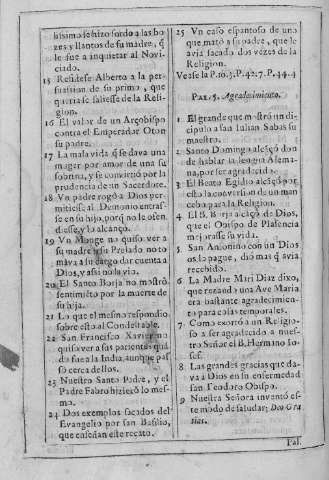 lissimo se hizo sordo a las bo
zes y llantos de su madre, q̃
le fue a inquietar al Novi
ciado.
15 Resistese Alberto a la per
suasion de su primo, que
queria se saliesse de la Reli
gion.
16 El valor de un Arçobispo
contra el Emperador Oton
su padre.
17 La mala vida q̃ se dava una
muger por amor de una su
sobrina, y se convirtiò por la
prudencia de un Sacerdote.
18 Vn padre rogò a Dios per-
mitiesse al Demonio entras-
se en su hijo, porq̃ no le ofen
diesse, y lo alcançò.
19 Vn Monge no quiso ver a
su madre y su Prelado no to
mava a su cargo dar cuenta a
Dios, y assi no la viò.
20 El Santo Borja no mostrò
sentimiẽto por la muerte de
su hija.
21 Lo que el mesmo respondio
sobre esto al Condestable.
22 San Francisco Xavier no
quiso ver a sus parientes quã
do fue a la India, aunque pas
sò cerca dellos.
23 Nuestro Santo Padre, y el
Padre Fabro hizierõ lo mes-
mo.
24 Dos exemplos sacados del
Evangelio por san Basilio,
que enseñan este recato.
25 Vn caso espantoso de uno
que matò a su padre, que le
avia sacado dos vezes de la
Religion.
Vease la P.10.3. P.42.7. P.44.4
PAL. 5. Agradecimiento.
1 El grande que mostrò un di-
cipulo a san Iulian Sabas su
maestro.
2 Santo Domingo alcãçò don
de hablar la lengua Alema-
na, por ser agradecido.
3 El Beato Egidio alcãçò por
esto la conversion de un man
cebo para la Religion.
4 El B. Borja alcãçò de Dios,
que el Obispo de Plasencia
mejorasse su vida.
5 San Antonino con un Dios
os lo pague, diò mas q̃ avia
recebido.
6 La Madre Mari Diaz dixo,
que rezando una Ave Maria
era bastante agradecimien-
to para cosas temporales.
7 Como exortò a un Religio-
so a ser agradecido a nues-
tro Señor el B. Hermano Io-
sef.
8 Las grandes gracias que da-
va a Dios en su enfermedad
san Teodoro Obispo.
9 Nuestra Señora inventò es-
te modo de saludar; Deo Gra
tias.
Pal.